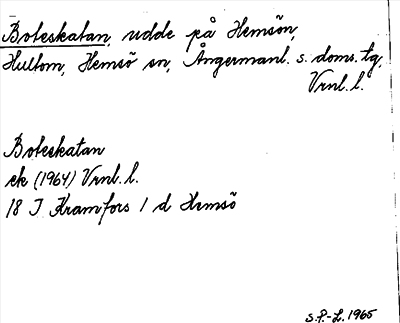 Boteskatan, udde på Hemsön,
Hultom, Hemsö sn, Ångermanl. s. doms. tg,
Vrnl. l.
Boteskatan
ek (1964) Vrnl. l.
18 J Kramfors 1 d Hemsö
S.P.-L. 1965